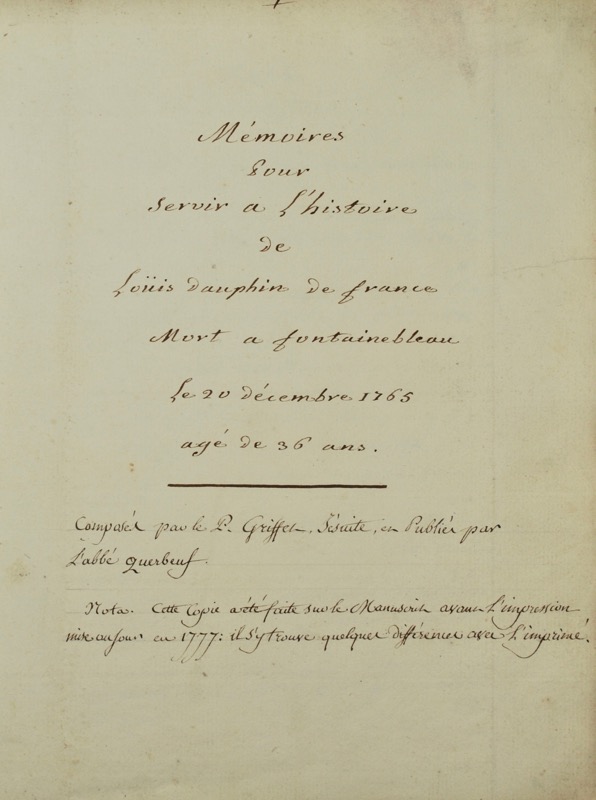 Mémoires
Pour
servir a L'histoire
de
Loüis dauphin de france
Mort a fontainebleau
Le 20 décembre 1765
agé de 36 ans.
Composés par le P. Griffet, Jésuite, et Publiés par
L'abbé Querbeuf.
Nota. Cette Copie a été faite sur le Manuscrit avant L'impression
mise au jour en 1777: il s'y trouve quelques différences avec L'imprimé.